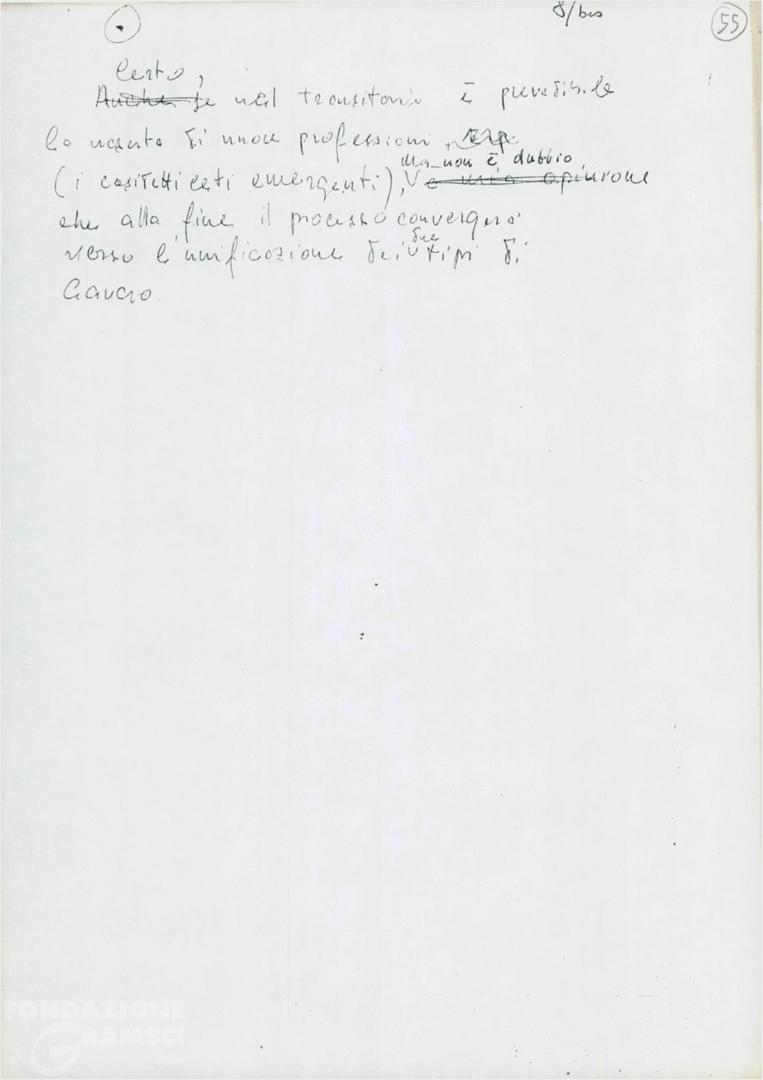 8/bis
55
Certo,
Anche se nel transitorio è prevedibile
la nascita di nuove professioni
ma non è dubbio
(i cosiddetti ceti emergenti), è mia opinione
che alla fine il processo convergerà
due
verso l'unificazione dei tipi di
lavoro
FONDAZIONE
GRAMSCI